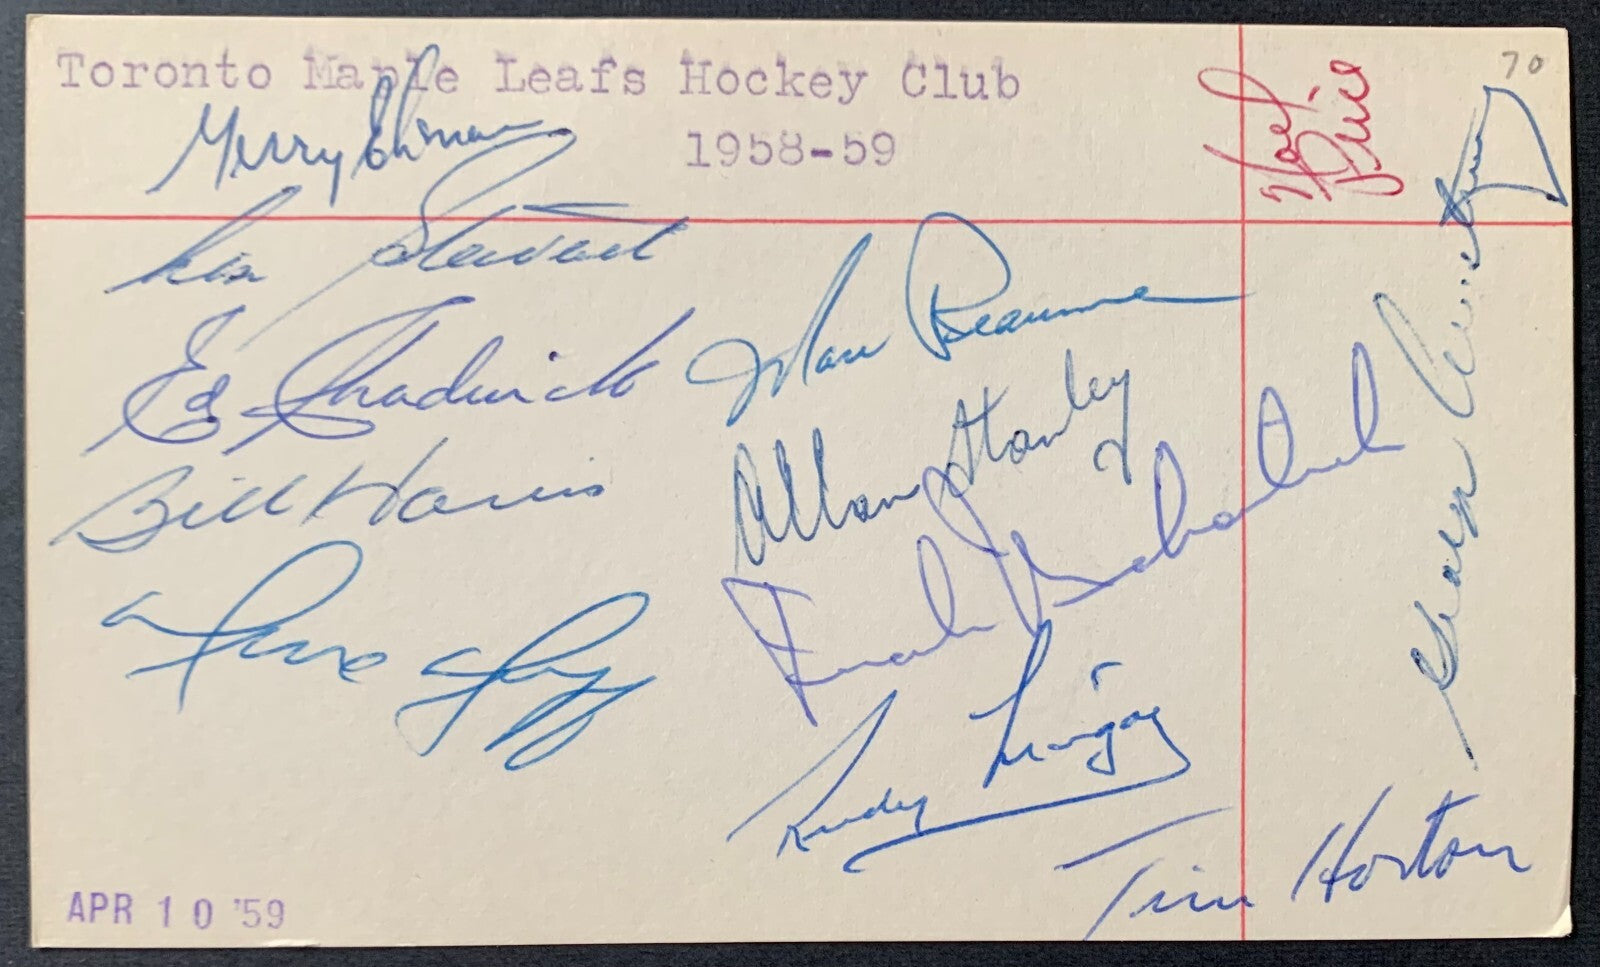 Toronto Maple Leafs Hockey Club
1958-59
70
Noel Price
Gerry Ehman
Ron Stewart
Ed Chadwick
Marc Reaume
Allan Stanley
Bill Harris
Frank Mahovlich
Dave Creighton
Rudy Migay
Tim Horton
APR 10 '59